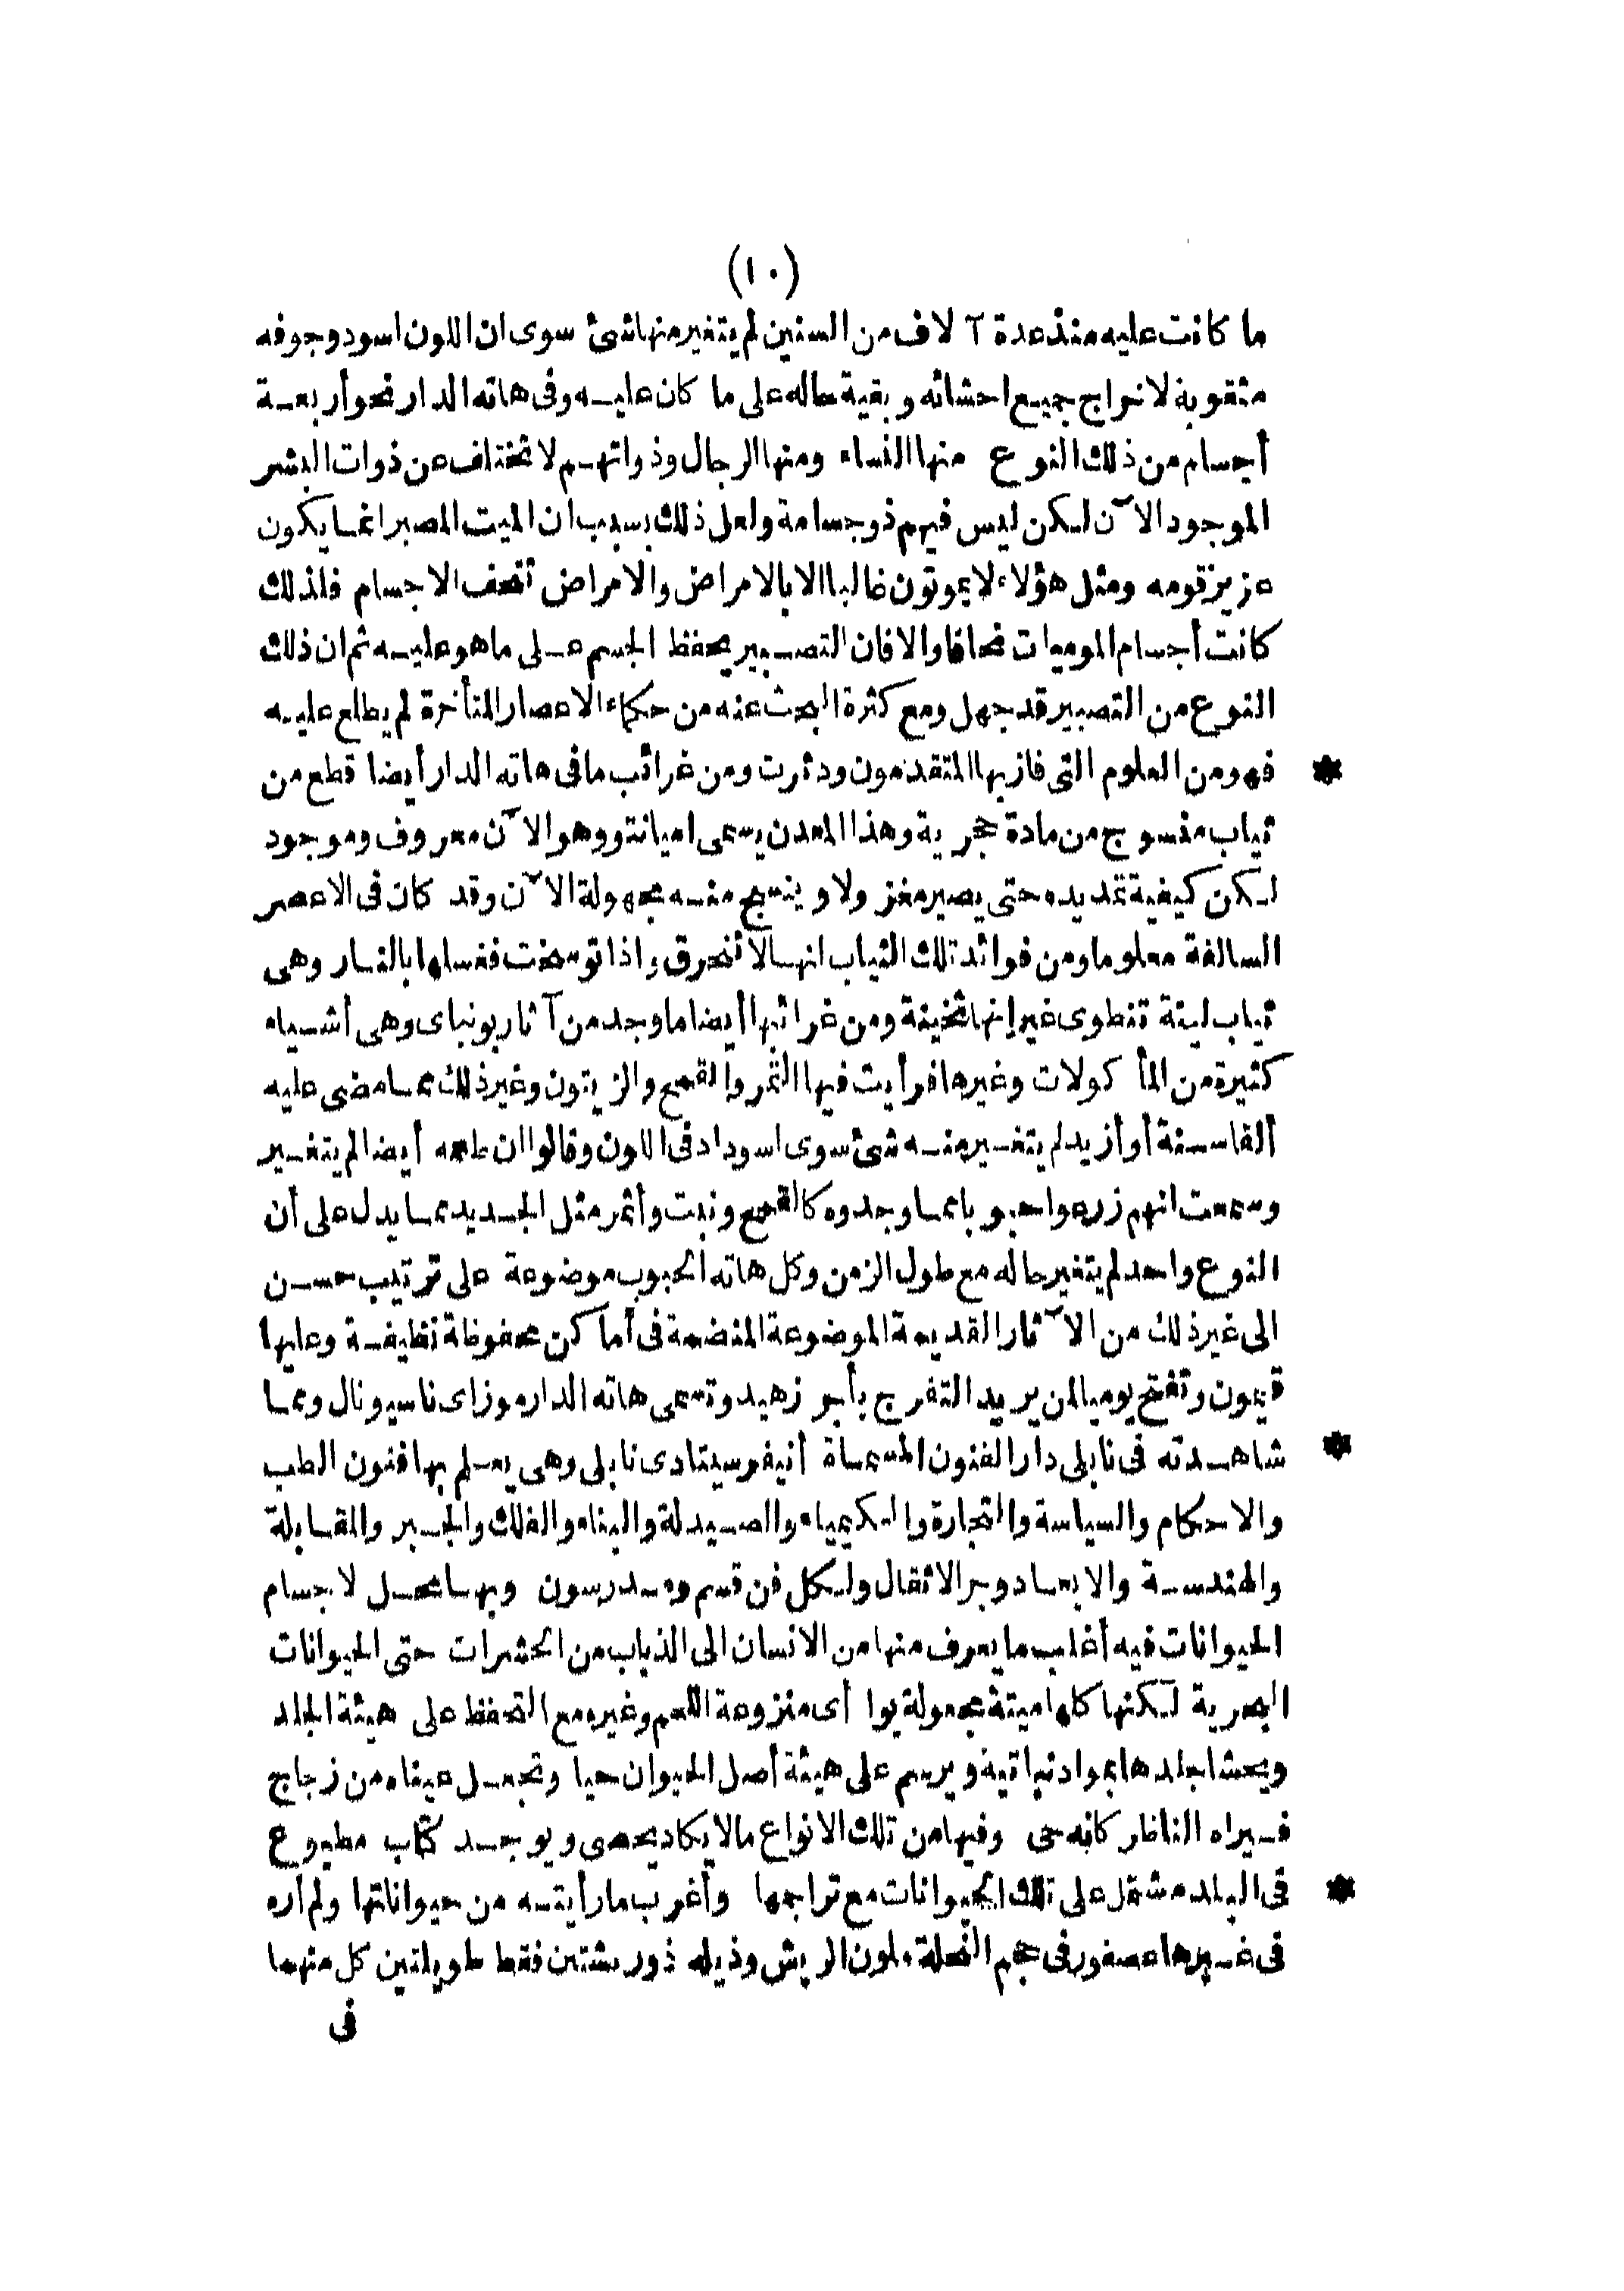 (١٠)
ما كانت عليه منذ عدة آلاف من السنين لم يتغير منها شئ سوى ان اللون اسود وجوفه
مثقوبة لاخراج جميع احشائه وبقية حاله على ما كان عليه وفى هاته الدار نحو أربعة
أجسام من ذلك النوع منها النساء ومنها الرجال وذواتهم لا تختلف عن ذوات البشر
الموجود الآن لكن ليس فيهم ذو جسامة ولعل ذلك بسبب ان الميت المصبر انما يكون
عزيز قومه ومثل هؤلاء لا يموتون غالبا الا بالامراض والامراض تضعف الاجسام فلذلك
كانت أجسام الموميات نحافا والا فان التصبير يحفظ الجسم على ما هو عليه ثم ان ذلك
النوع من التصبير قد جهل ومع كثرة البحث عنه من حكماء الاعصار المتأخرة لم يطلع عليه
* فهو من العلوم التى فاز بها المتقدمون ودثرت ومن غرائب ما فى هاته الدار أيضا قطع من
ثياب منسوج من مادة حجرية وهذا المعدن يسمى اميانتو وهو الآن معروف وموجود
لكن كيفية تمديده حتى يصير مغزولا وينسج منه مجهولة الآن وقد كان فى الاعصر
السالفة معلوما ومن فوائد تلك الثياب انها لا تنحرق واذا توسخت فغسلها بالنار وهى
ثياب لينة تنطوى غير انها ثخينة ومن غرائبها أيضا ما وجد من آثار بونباى وهى أشياء
كثيرة من المأكولات وغيرها فرأيت فيها التمر والقمح والزيتون وغير ذلك مما مضى عليه
ألفا سنة أو أزيد لم يتغير منه شئ سوى اسوداد فى اللون وقالوا ان طعمه أيضا لم يتغير
وسمعت انهم زرعوا حبوبا مما وجدوه كالقمح ونبت وأثمر مثل الجديد مما يدل على أن
النوع واحد لم يتغير حاله مع طول الزمن وكل هاته الحبوب موضوعة على ترتيب حسن
الى غير ذلك من الآثار القديمة الموضوعة المنضمة فى أماكن محفوظة نظيفة وعليها
قيمون وتفتح يوميا لمن يريد التفرج بأجر زهيد وتسمى هاته الدار موزاى ناسيونال ومما
* شاهدته فى نابلى دار الفنون المسماة أنيفرسيتادى نابلى وهى يعلم بها فنون الطب
والاحكام والسياسة والتجارة والكيمياء والصيدلة والبناء والفلك والجبر والمقابلة
والهندسة والابعاد وجر الاثقال ولكل فن قسم ومدرسون وبها محل لاجسام
الحيوانات فيه أغلب ما يعرف منها من الانسان الى الذباب من الحشرات حتى الحيوانات
البحرية لكنها كلها ميتة مجعولة بوا أى منزوعة اللحم وغيره مع التحفظ على هيئة الجلد
ويحشا جلدها بمواد نباتية ويرسم على هيئة أصل الحيوان حيا وتجعل عيناه من زجاج
فيراه الناظر كانه حى وفيها من تلك الانواع مالا يكاد يحصى ويوجد كتاب مطبوع
* فى البلد مشتمل على تلك الحيوانات مع تراجمها وأغرب ما رأيته من حيواناتها ولم أره
فى غيرها عصفور فى حجم النحلة ملون الريش وذيله ذو ريشتين فقط طويلتين كل منهما
فى